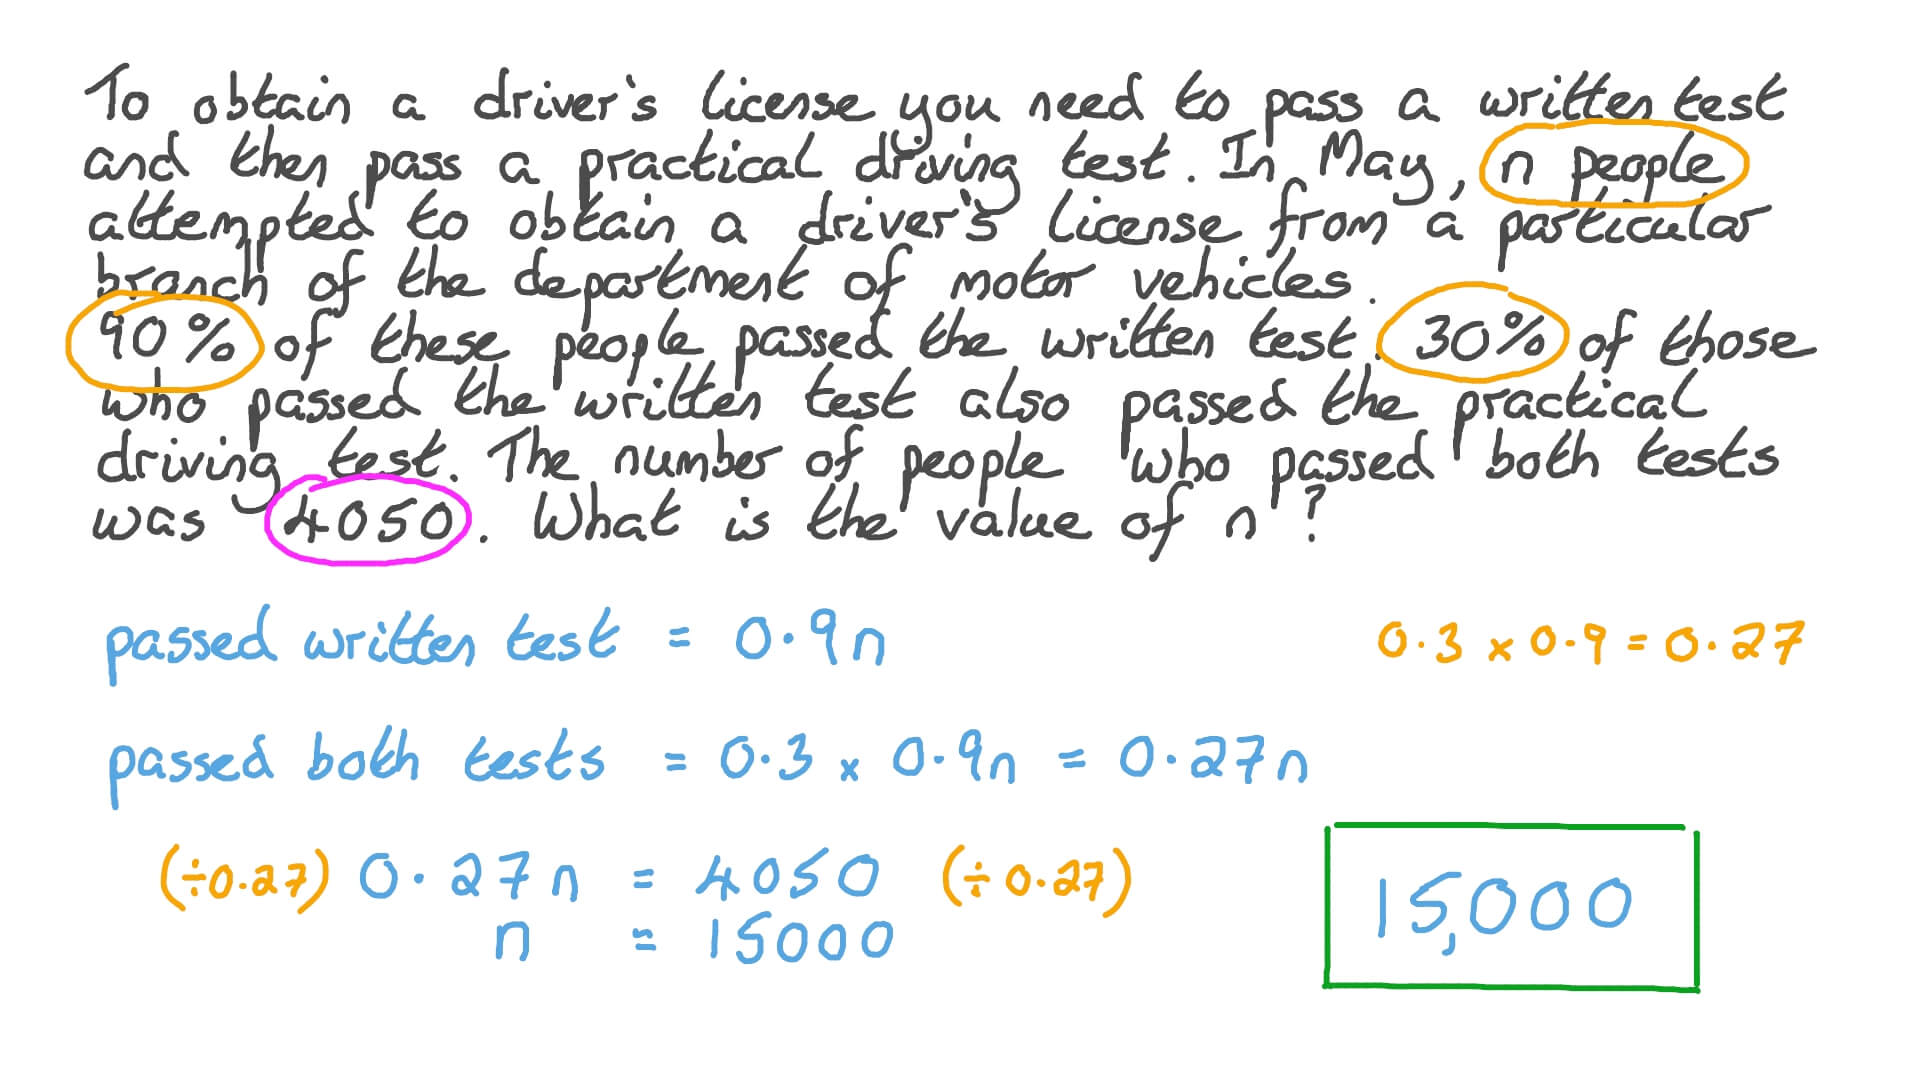 To obtain a driver's license you need to pass a written test
and then pass a practical driving test. In May, n people
attempted to obtain a driver's license from a particular
branch of the department of motor vehicles.
90% of these people passed the written test. 30% of those
who passed the written test also passed the practical
driving test. The number of people who passed both tests
was 4050. What is the value of n?
passed written test = 0.9n
0.3 x 0.9 = 0.27
passed both tests = 0.3 x 0.9n = 0.27n
(÷0.27) 0.27n = 4050 (÷0.27)
n = 15000
15,000